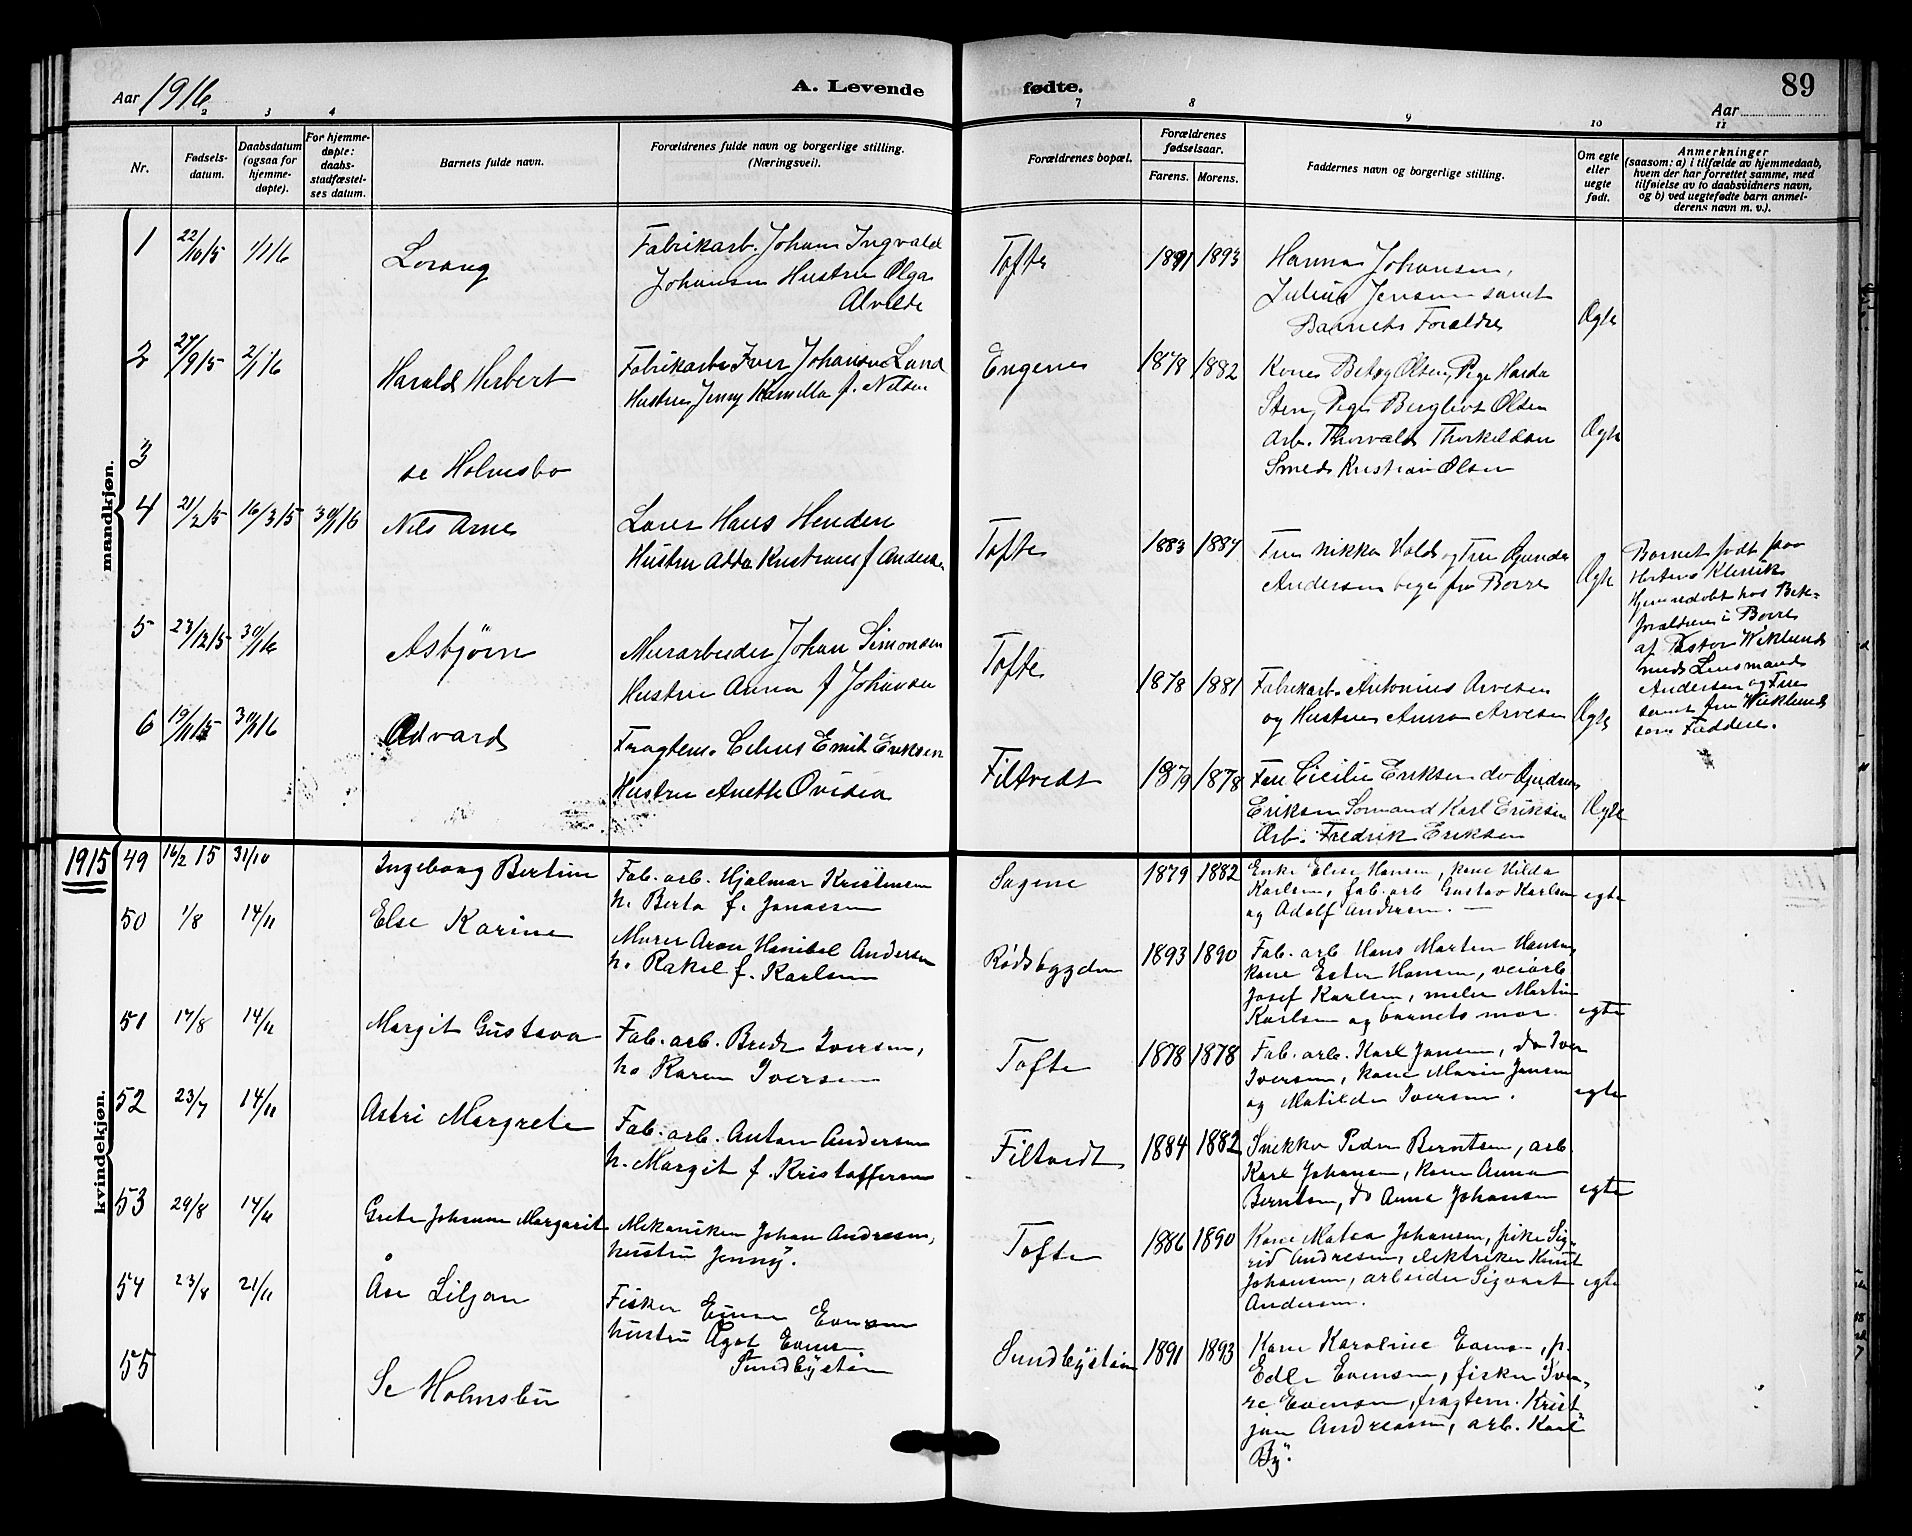 Aar 1916
A. Levende
fødte.
89
Aar
1 2 3 4
7 8 9 10 11
Nr.
Fødsels-
datum.
Daabsdatum
(ogsaa for
hjemme-
døpte).
For hjemme-
døpte:
daabs-
stadfæstel-
ses datum.
Barnets fulde navn.
Forældrenes fulde navn og borgerlige stilling.
(Næringsvei).
Forældrenes bopæl.
Forældrenes
fødselsaar.
Farens. Morens.
Faddernes navn og borgerlige stilling.
Om egte
eller
uegte
født.
Anmerkninger
(saasom: a) i tilfælde av hjemmedaab,
hvem der har forrettet samme, med
tilføielse av to daabsvidners navn,
og b) ved uegtefødte barn anmel-
derens navn m. v.).
mandkjøn.
1 22/10 15 1/1 16 Lorang
Fabrikarb. Johan Ingvald
Johansen Hustru Olga
Alvilde
Tofte 1891 1893
Hanna Johansen,
Julius Jensen samt
Barnets Forældre
Ægte
2 27/9 15 2/1 16 Harald Herbert
Fabrikarb. Iver Johansen Lund
Hustru Jenny Kamilla f. Nilsen
Engenes 1878 1882
Kone Betsy Olsen, Pige Harda
Sten, Pige Bergliot Olsen
Arb. Thorvald Thorkildsen
Smed Kristian Olsen
Ægte
3 se Holmsbo
4 21/2 15 16/3 15 30/1 16 Nils Arne
Hans
Hustru f Andersen
Tofte 1883 1884
Fru og Fru
Andersen begge fra Borre
Ægte
Barnet født paa
Hortens Klinik
Hjemmedøbt hos
forældrene i Borre
af Pastor Wiklund
med Lensmand
Andersen og Fru
samt fru Wiklund
som Faddere.
5 23/12 15 30/1 16 Asbjørn
Murarbeider Johan Simonsen
Hustru Anna f Johansen
Tofte 1878 1881
Fabrikarb. Antonius Arvesen
og Hustru Anna Arvesen
Ægte
6 19/11 15 30/1 16 Edvard
Fragtem. Emil Eriksen
Hustru Anette Ovidia
Filtvedt 1879 1878
Fru Cicilie Eriksen do
Eriksen Sømand Karl Eriksen
Arb. Fredrik Eriksen
Ægte
1915
kvindekjøn.
49 16/2 15 31/10 Ingeborg Bertine
Fab. arb. Hjalmar Kristensen
h. Berta f. Jonassen
Sagene 1879 1882
Enke Elise Hansen, kone Hilda
Karlsen, fab. arb Gustav Karlsen
og Adolf Andersen. —
egte
50 1/8 14/11 Else Karine
Murer Aron Hanibal Andersen
h. Rakel f. Karlsen
Rødsbygden 1893 1890
Fab. arb Hans Martin Hansen,
kone Ester Hansen, veiarb.
Josef Karlsen, maler Martin
Karlsen og barnets mor.
egte
51 17/8 14/11 Margit Gustava
Fab. arb. Brede Iversen,
h. Karen Iversen
Tofte 1878 1878
Fab. arb. Karl Jansen, do Iver
Iversen, kone Marie Jansen
og Matilde Iversen.
egte
52 23/7 14/11 Astri Margrete
Fab. arb. Anton Andersen
h. Margit f. Kristoffersen
Filtvedt 1884 1882
Snekker Peder Berntsen, arb.
Karl Johansen, kone Anna
Berntsen, do Anna Johansen
egte
53 29/8 14/11 Grete Johanne Margarit
Mekaniker Johan Andresen,
hustru Jenny.
Tofte 1886 1890
Kone Matea Johansen, pike Sig-
rid Andresen, elektriker Knut
Johansen, arbeider Sigvart
Andersen.
egte
54 23/8 21/11 Åse Liljan
Fisker Einar Evensen
hustru Ågot Evens.
Sundbystøen
Sundbystøen 1891 1893
Kone Karoline Evensen, p.
Edle Evensen, fisker Sver-
re Evensen, fragtem. Krist-
jan Andreassen, arb. Karl
By.
55 Se Holmsbu